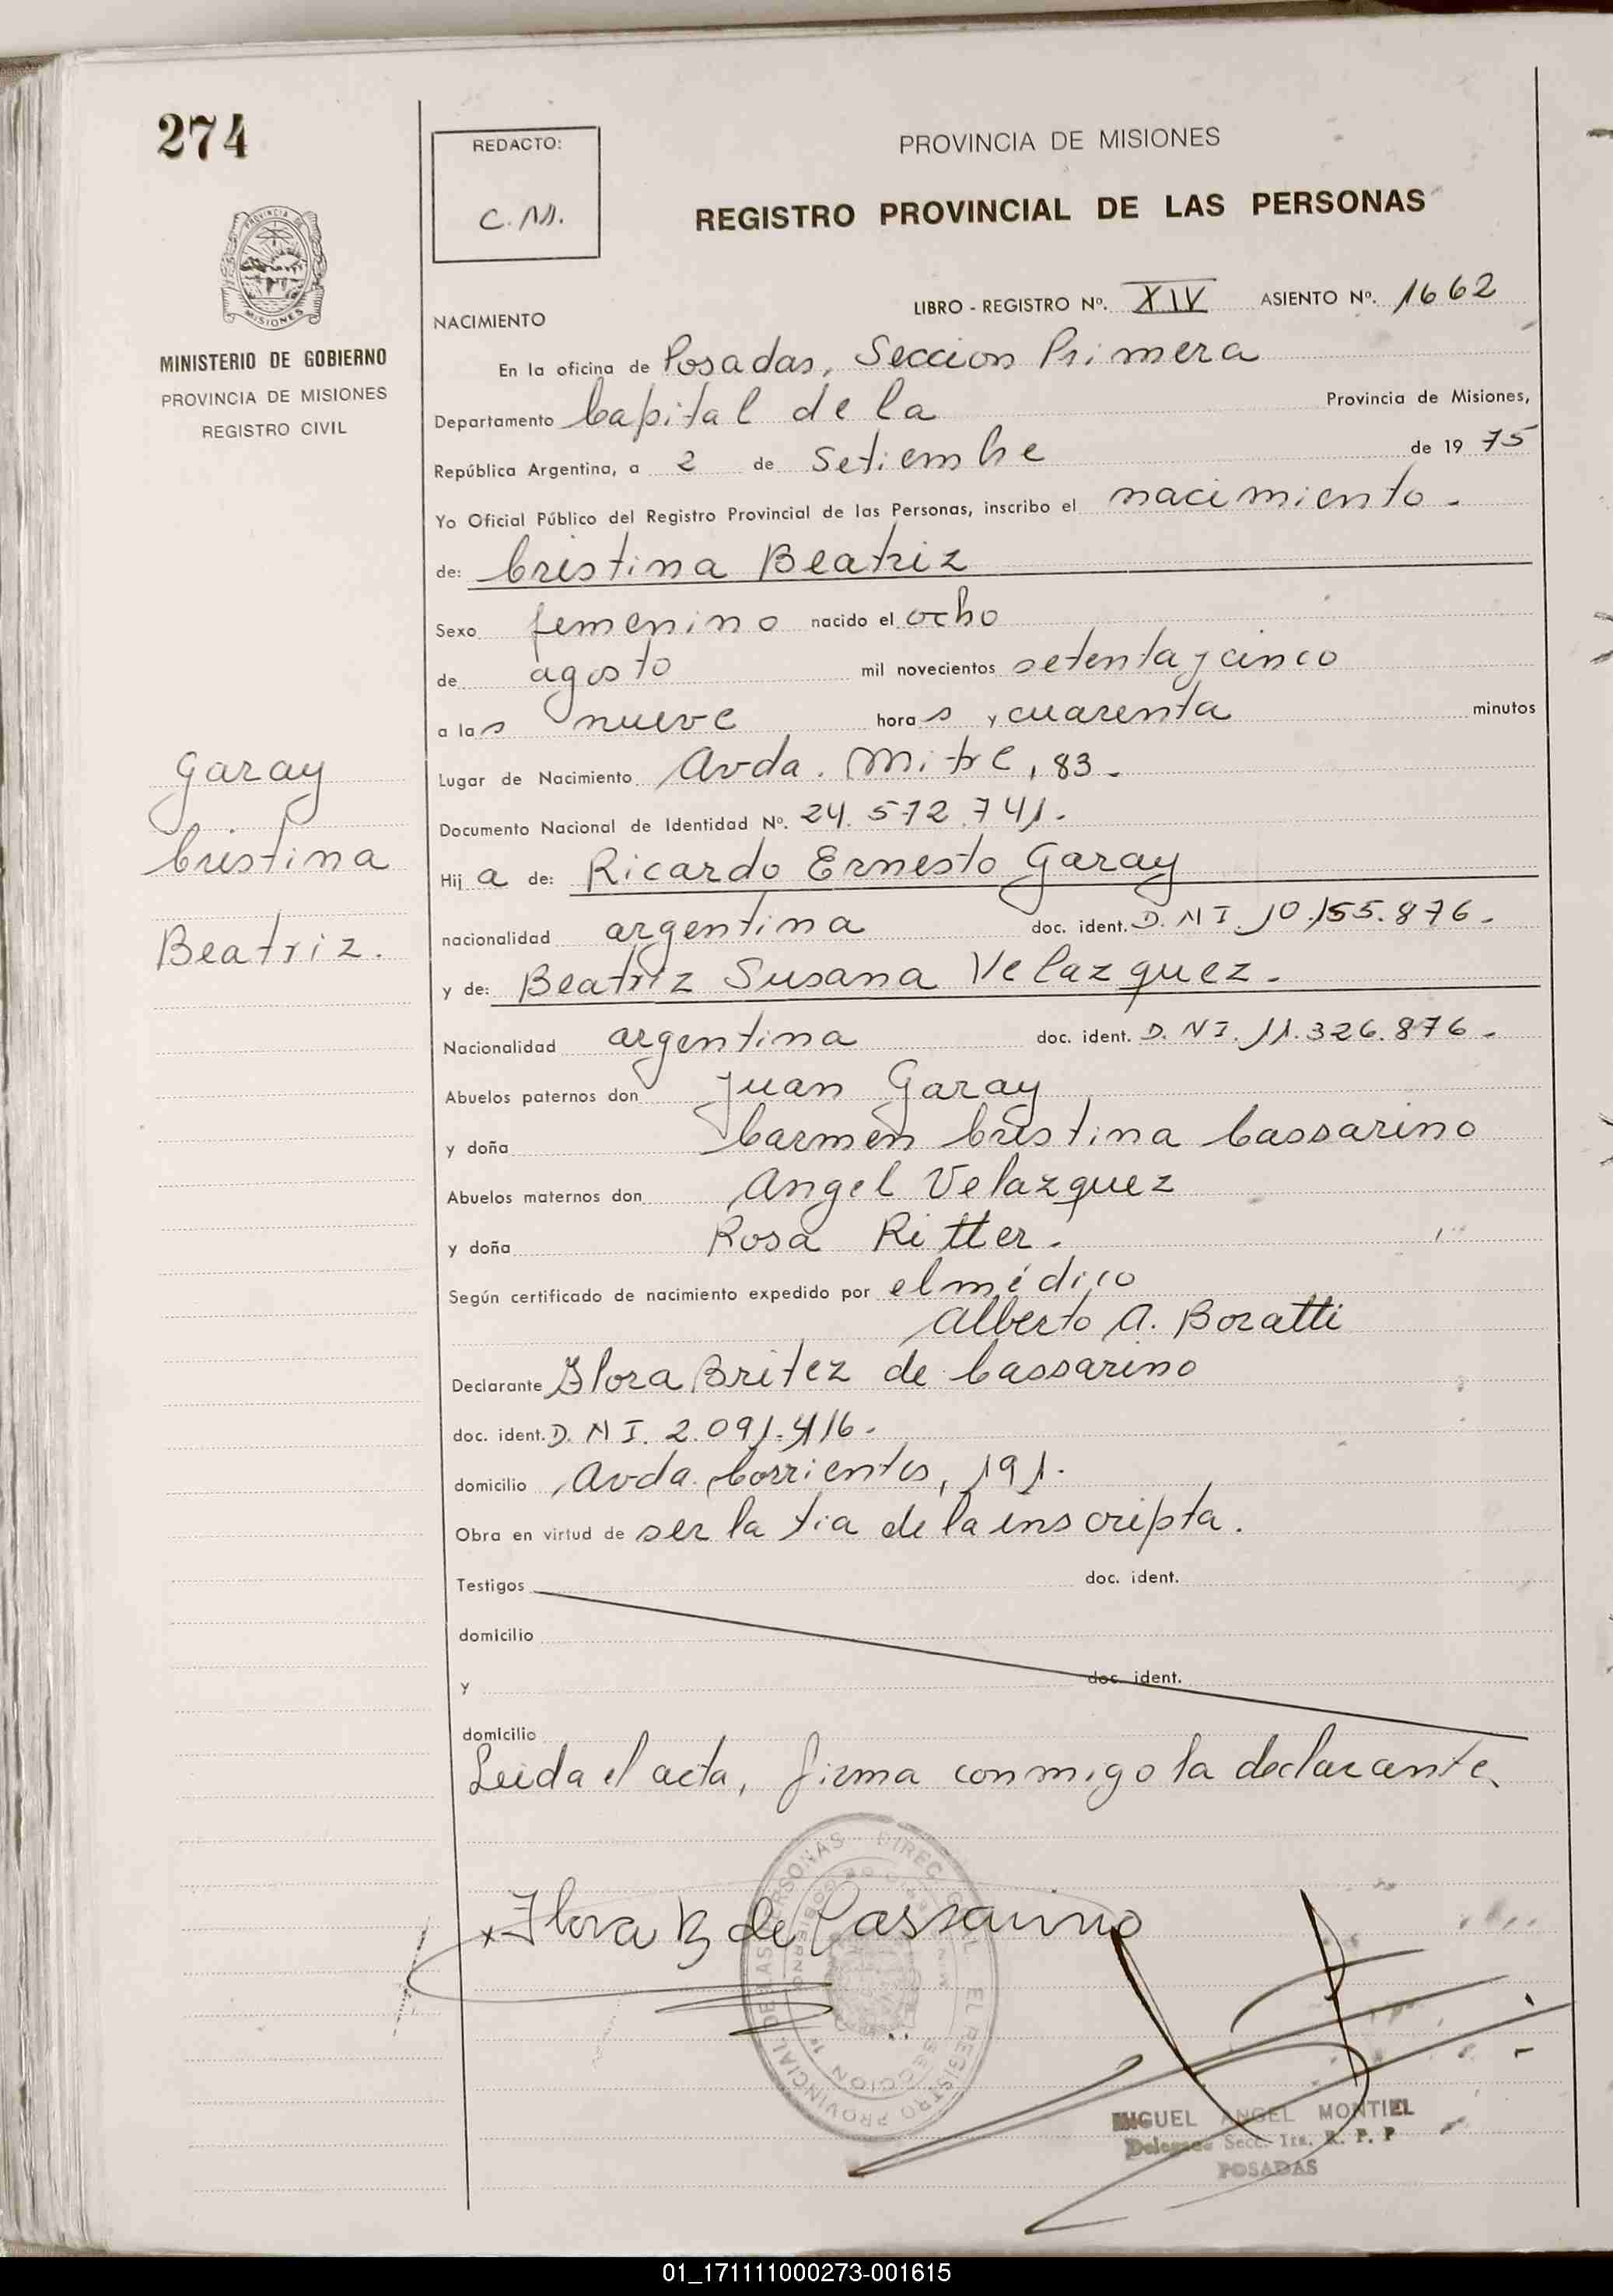 274
REDACTO:
C.M.
PROVINCIA DE MISIONES
REGISTRO PROVINCIAL DE LAS PERSONAS
PROVINCIA DE
MISIONES
MINISTERIO DE GOBIERNO
PROVINCIA DE MISIONES
REGISTRO CIVIL
LIBRO - REGISTRO Nº. XIV ASIENTO Nº. 1662
NACIMIENTO
En la oficina de Posadas, Seccion Primera
Departamento Capital de la Provincia de Misiones,
República Argentina, a 2 de Setiembre de 1975
Yo Oficial Público del Registro Provincial de las Personas, inscribo el nacimiento.
de: Cristina Beatriz
Sexo femenino nacido el ocho
de agosto mil novecientos setenta y cinco
a las nueve horas y cuarenta minutos
Lugar de Nacimiento Avda. Mitre, 83.
Documento Nacional de Identidad Nº. 24.572.741.
Garay
Cristina
Beatriz.
Hija de: Ricardo Ernesto Garay
nacionalidad argentina doc. ident. D.N.I. 10.155.876.
y de: Beatriz Susana Velazquez.
Nacionalidad argentina doc. ident. D.N.I. 11.326.876.
Abuelos paternos don Juan Garay
y doña Carmen Cristina Cassarino
Abuelos maternos don Angel Velazquez
y doña Rosa Ritter.
Según certificado de nacimiento expedido por el médico
Alberto A. Boratti
Declarante Flora Britez de Cassarino
doc. ident. D.N.I. 2.091.416.
domicilio Avda. Corrientes, 191.
Obra en virtud de ser la tia de la inscripta.
Testigos doc. ident.
domicilio
y doc. ident.
domicilio
Leida el acta, firma conmigo la declarante.
x Flora B de Cassarino
SECCION 1ª
MIGUEL ANGEL MONTIEL
Delegado Secc. 1ra. R. P. P
POSADAS
01_171111000273-001615